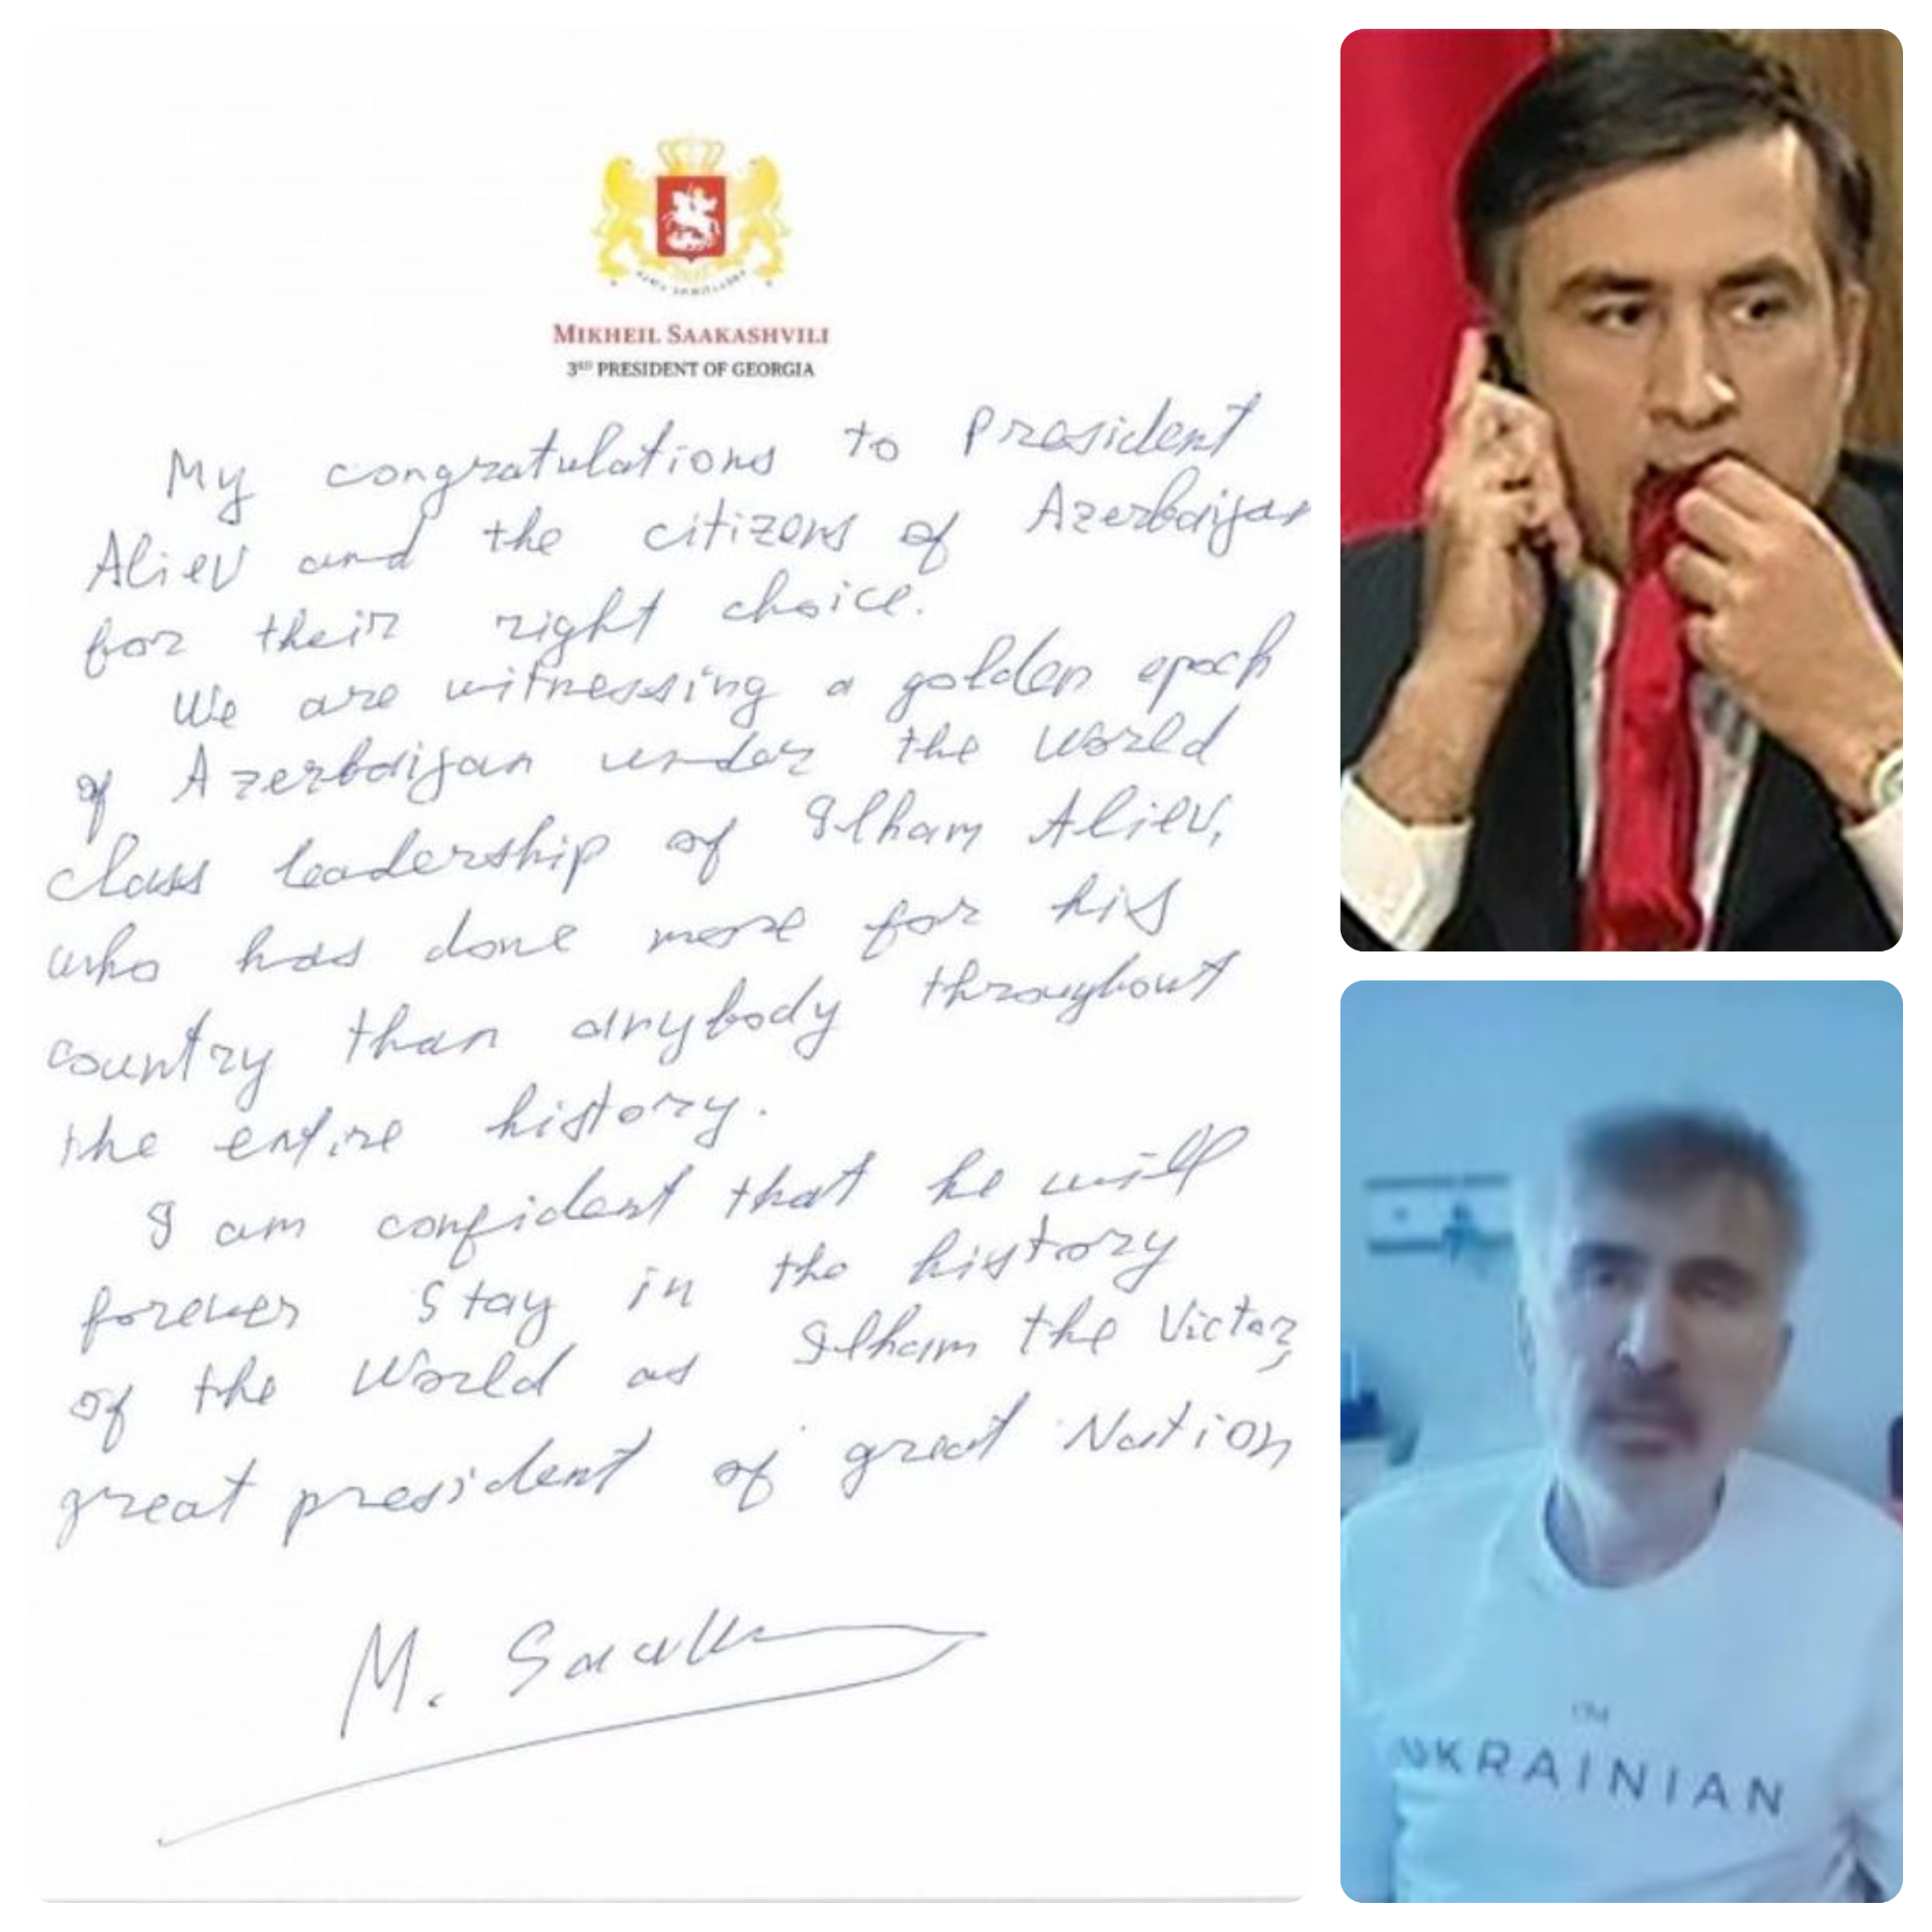 MIKHEIL SAAKASHVILI
3RD PRESIDENT OF GEORGIA
My congratulations to President
Aliev and the citizens of Azerbaijan
for their right choice.
We are witnessing a golden epoch
of Azerbaijan under the world
class leadership of Ilham Aliev,
who has done more for his
country than anybody throughout
the entire history.
I am confident that he will
forever stay in the history
of the World as Ilham the Victor,
great president of great Nation
M. Saak
I'M
UKRAINIAN